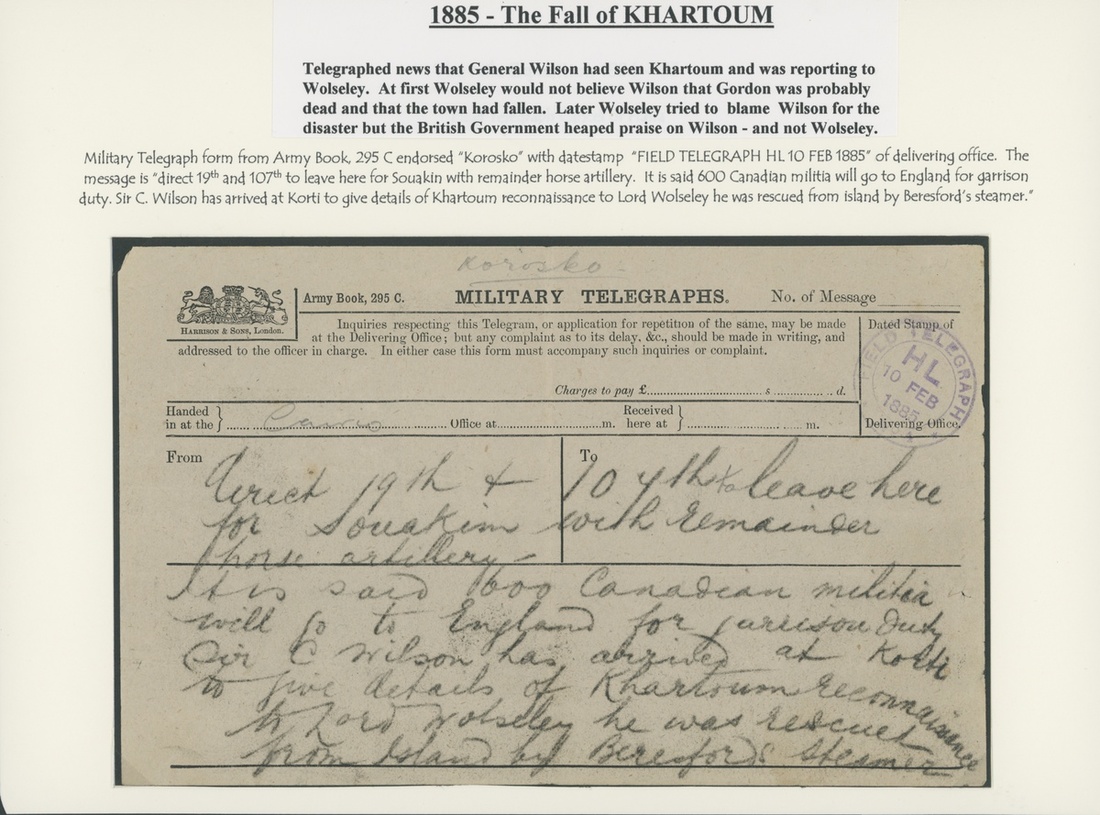 1885 - The Fall of KHARTOUM
Telegraphed news that General Wilson had seen Khartoum and was reporting to
Wolseley. At first Wolseley would not believe Wilson that Gordon was probably
dead and that the town had fallen. Later Wolseley tried to blame Wilson for the
disaster but the British Government heaped praise on Wilson - and not Wolseley.
Military Telegraph form from Army Book, 295 C endorsed "Korosko" with datestamp "FIELD TELEGRAPH HL 10 FEB 1885" of delivering office. The
message is "direct 19th and 107th to leave here for Souakin with remainder horse artillery. It is said 600 Canadian militia will go to England for garrison
duty. Sir C. Wilson has arrived at Korti to give details of Khartoum reconnaissance to Lord Wolseley he was rescued from island by Beresford's steamer."
Korosko
HARRISON & SONS, London.
Army Book, 295 C.
MILITARY TELEGRAPHS.
No. of Message
Inquiries respecting this Telegram, or application for repetition of the same, may be made
at the Delivering Office; but any complaint as to its delay, &c., should be made in writing, and
addressed to the officer in charge. In either case this form must accompany such inquiries or complaint.
Charges to pay £ s d.
Dated Stamp of
FIELD TELEGRAPH
HL
10 FEB
1885
Delivering Office.
Handed
in at the } Cairo Office at m.
Received
here at } m.
From
To
direct 19th + 107th to leave here
for Souakim with remainder
horse artillery -
It is said 600 Canadian militia
will go to England for garrison duty
Sir C Wilson has arrived at Korti
to give details of Khartoum reconnaissance
to Lord Wolseley he was rescued
from Island by Beresfords Steamer